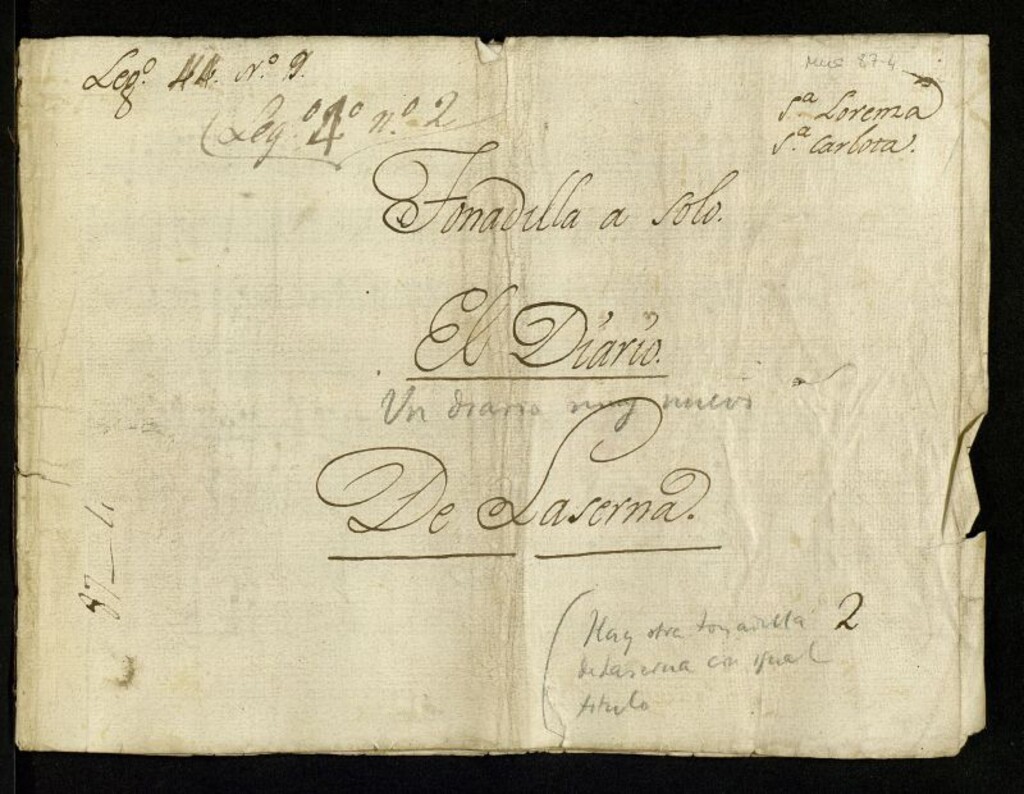 Legº. 44. Nº. 9.
Mus 87-4
(Leg.º 4º n.º 2
Sª Lorenza
Sª. Carlota.
Tonadilla a solo.
El Diario.
Un diario muy nuevo
De Laserna.
87-4
2
(Hay otra tonadilla
de Laserna con igual
titulo